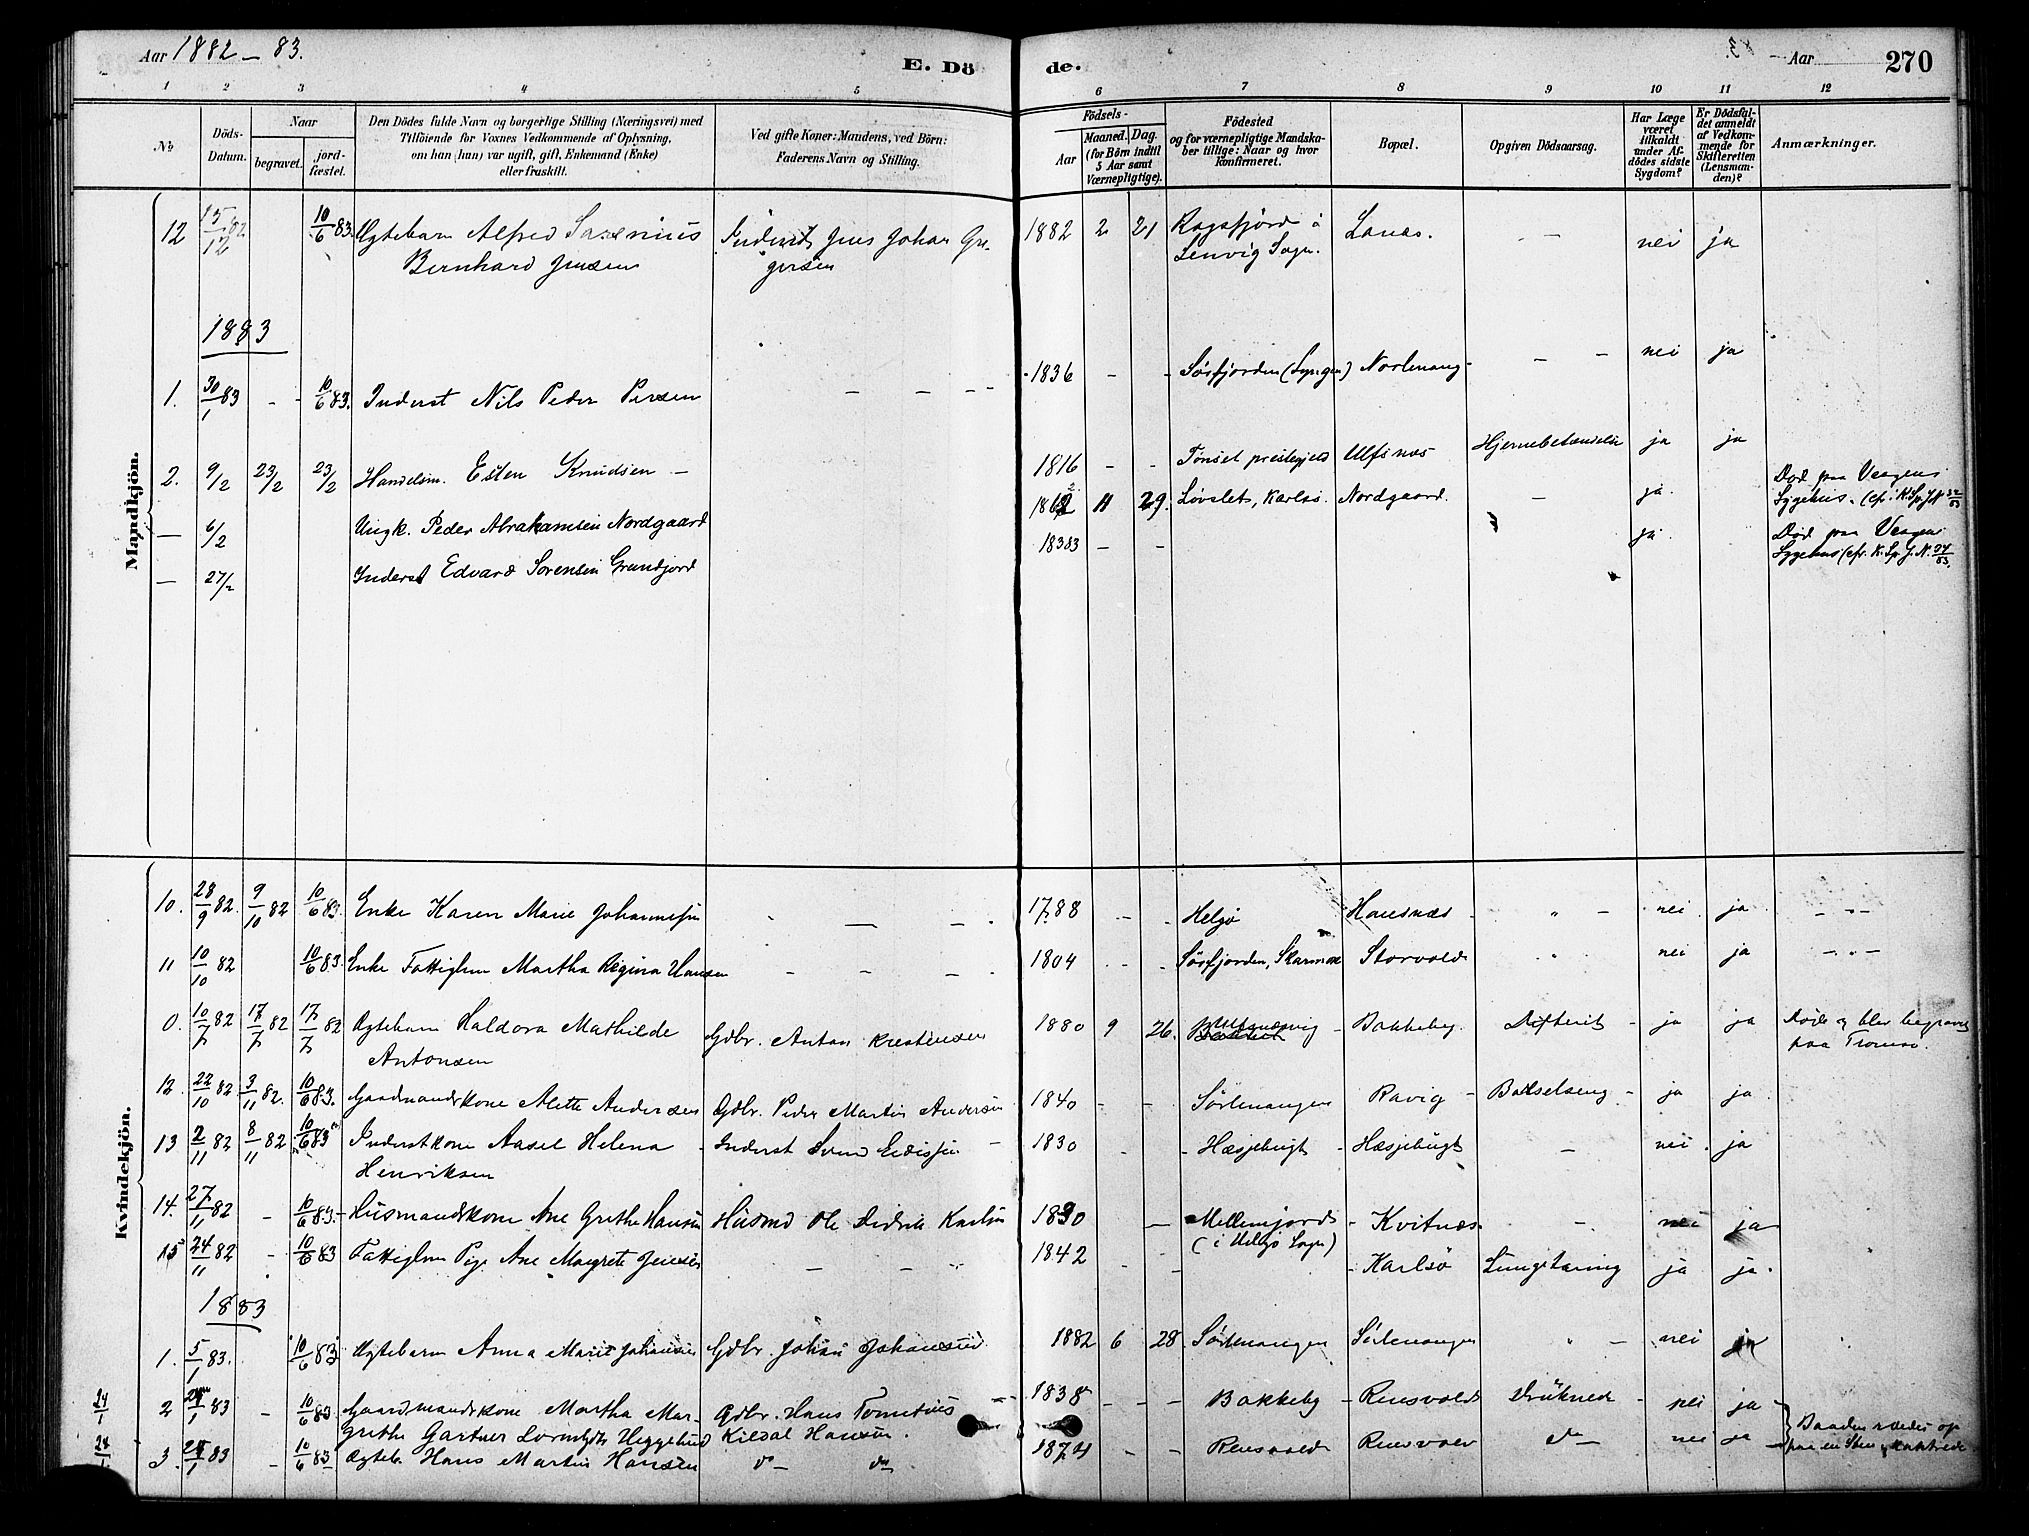 Aar 1882 - 83.
E. Dö
de.
Aar
270
1 2 3 4 5 6 7 8 9 10 11 12
No
Döds-Datum.
Naar
begravet.
jord-fæstet.
Den Dödes fulde Navn og borgerlige Stilling (Næringsvei) med
Tilföiende for Voxnes Vedkommende af Oplysning,
om han (hun) var ugift, gift, Enkemand (Enke)
eller fraskilt.
Ved gifte Koner: Mandens, ved Börn:
Faderens Navn og Stilling.
Födsels-
Aar
Maaned. Dag.
(for Börn indtil
5 Aar samt
Værnepligtige).
Födested
og for værnepligtige Mandska-
ber tillige: Naar og hvor
konfirmeret.
Bopæl.
Opgiven Dödsaarsag.
Har Læge
været
tilkaldt
under Af-
dödes sidste
Sygdom?
Er Dödsfal-
det anmeldt
af Vedkom-
mende for
Skifteretten
(Lensman-
den)?
Anmærkninger.
Mandkjön.
12 15/12 82 10/6 83. Ægtebarn Alfred Bernhard Jensen Inderst Jens Johan Gregersen 1882 2 21 Lenvig Sogn. Lanes. — nei ja
1883
1. 30/1 83 - - 10/6 83. Inderst Nils Peder Persen — — — 1836 - - Sörfjorden (Lyngen) — — nei ja
2. 9/2 23/2 23/2 Handelsm. Esten Knudsen — 1816 - - Tönset prestegjeld Ulfsnes Hjernebetændelse ja ja
— 6/2 Ungk. Peder Abrahamsen Nordgaard 1862 11 29. Karlsö. Nordgaard. — ja. Död paa Veagens Sygehus.
— 27/2 Inderst Edvard Sörensen Grundjord — — ja. Död paa Veagens Sygehus
Kvindekjön.
10. 28/9 82. 9/10 82 10/6 83. Enke Karen Marie Johannesen — — 1788 - - Helgö Hansnæs " — nei ja — " —
11 10/10 82 10/6 83. Enke Fattiglem Martha Regina Hansen - - - 1804 - - Sörfjorden, Storvold " nei ja — " —
0. 10/7 82 17/7 82 17/7 82 Ægtebarn Haldora Mathilde Antonsen Gdbr. Anton Kristensen 1880 9 26. Bakkeby. Difterit - ja ja Döde og blev begravet paa Tromsö.
12. 22/10 82 3/11 82. 10/6 83. Gaardmandskone Alette Andersen Gdbr. Peder Martin Andersen 1840 - - Sörlenangen Ravig - Barselseng - ja ja
13 2/11 82 8/11 82 10/6 83 Inderstkone Aasel Helena Henriksen Inderst 1830 - - Hæsjebugt - Hæsjebugt — nei. ja
14. 27/11 82 - 10/6 83. Husmandskone Ane Grethe Hansen Husmd Ole Didrik Karlsen — Mellemjord (i Helgö Sogn) - Kvitnæs - nei ja
15 24/11 82 - 10/6 83 Fattiglem Pige Ane Margrete Jensen — — 1842 - - - Karlsö Lungetæring ja ja.
1883
1. 5/1 83. 10/6 83 Ægtebarn Anna Marie Johansen Gdbr. Johan Johansen 1882 6 28 Sörlenangen Sörlenangen " — nei ja
24/1 2 24/1 83 - 10/6 83 Gaardmandskone Martha Margrethe Gdbr. Hans Kildal Hansen. 1838 - - - Bakkeby - Rensvold Druknede - nei ja
24/1 3. 24/1 83 - 10/6 83 Ægteb. Hans Martin Hansen do do 1874 - - Rensvold Rensvold do nei ja Baaden stödte op paa en Sten, kantrede